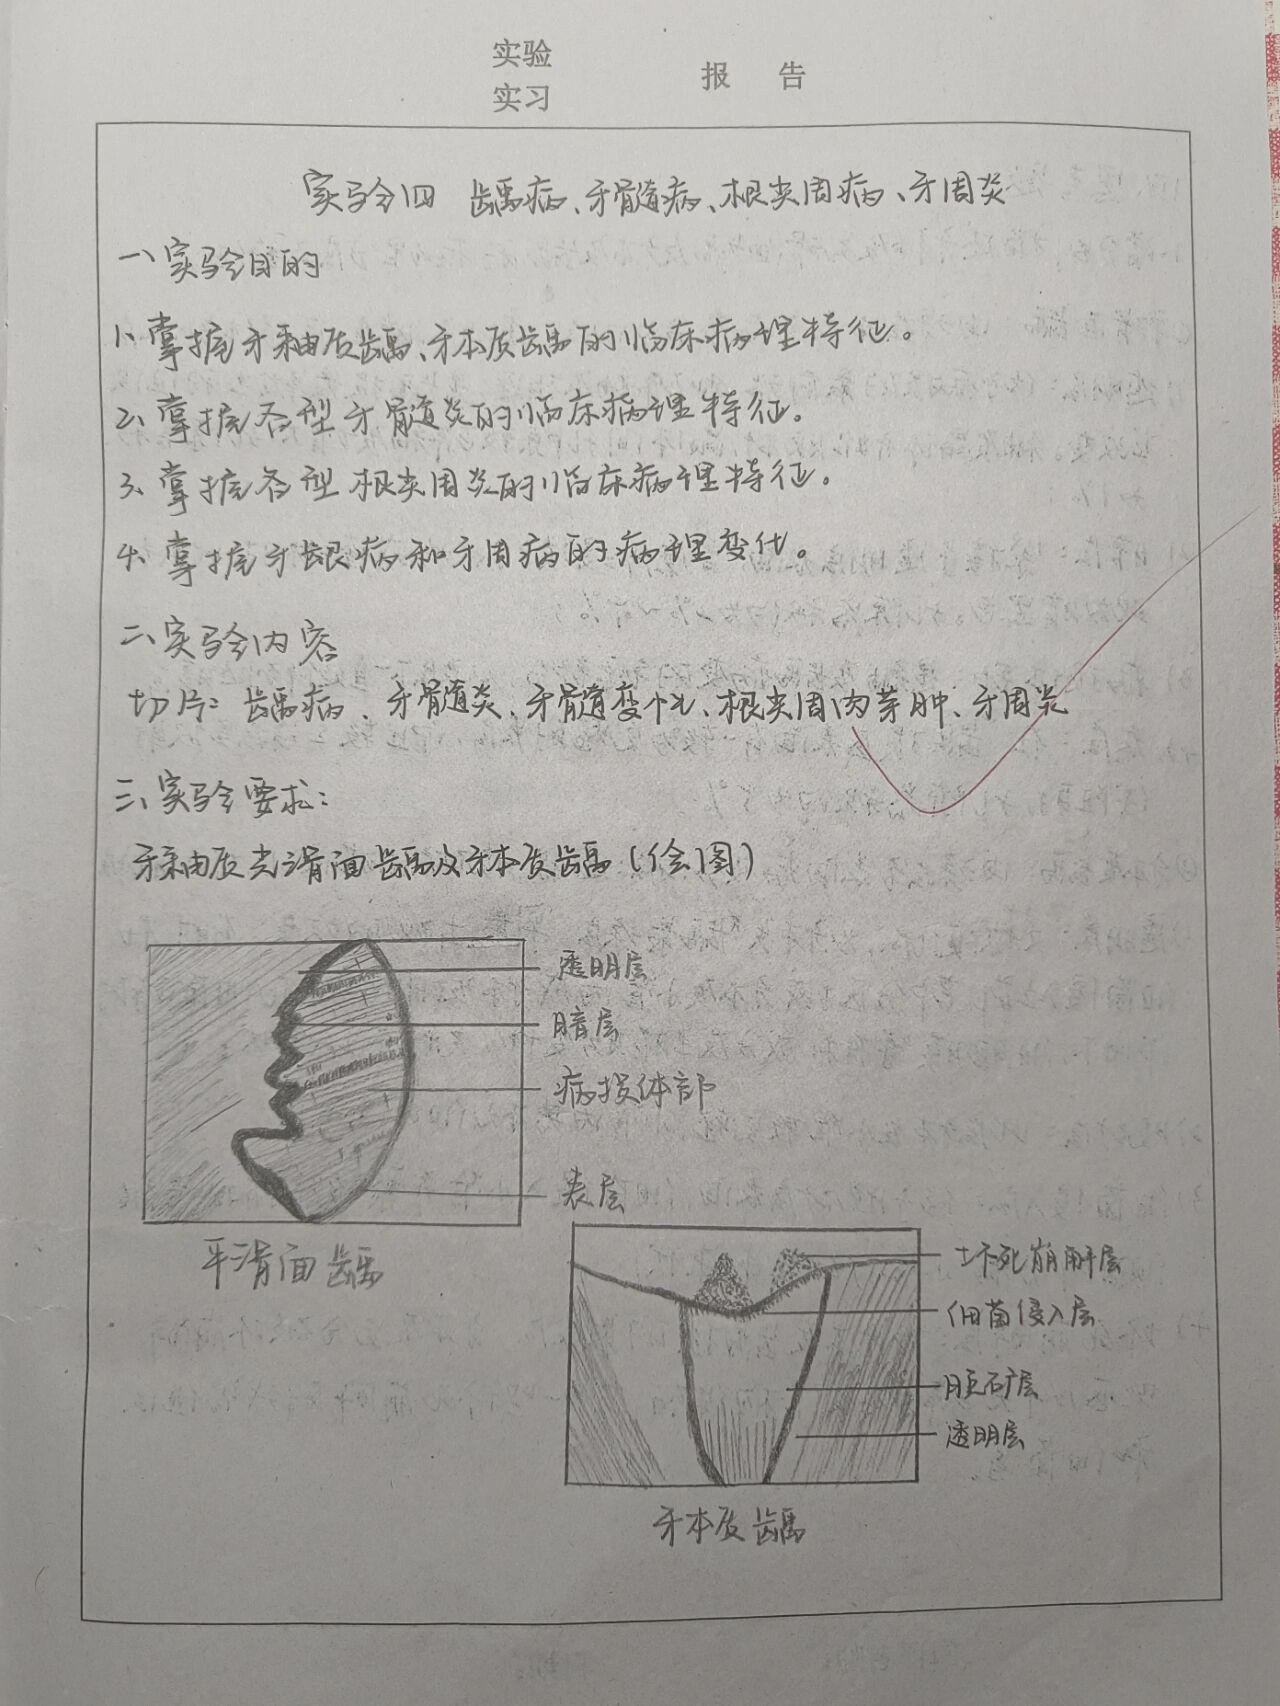 实验
实习
报 告
实验四 龋病、牙髓病、根尖周病、牙周炎
一、实验目的
1、掌握牙釉质龋、牙本质龋的临床病理特征。
2、掌握各型牙髓炎的临床病理特征。
3、掌握各型根尖周炎的临床病理特征。
4、掌握牙龈病和牙周病的病理变化。
二、实验内容
切片：龋病、牙髓炎、牙髓变性、根尖周肉芽肿、牙周炎
三、实验要求：
牙釉质光滑面龋及牙本质龋（绘图）
透明层
暗层
病损体部
表层
平滑面龋
坏死崩解层
细菌侵入层
脱矿层
透明层
牙本质龋